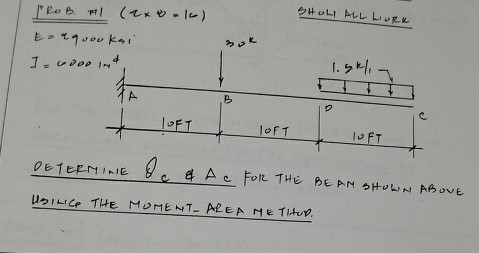 PROB. #1 (2 x 8 = 16)
SHOW ALL WORK
E = 29000 Ksi
30ᵏ
I = 6000 in⁴
1.5 k/'
A
B
D
C
10FT
10FT
10FT
DETERMINE θc & Δc FOR THE BEAM SHOWN ABOVE
USING THE MOMENT-AREA METHOD.